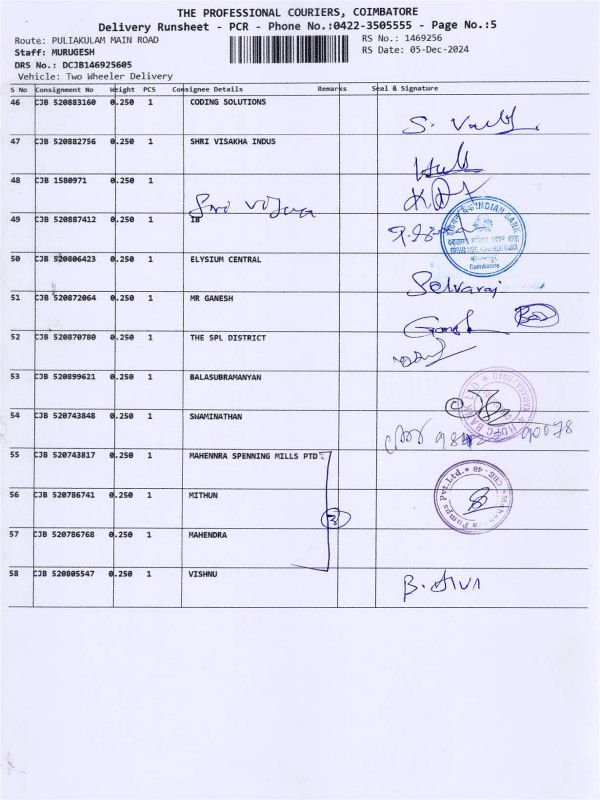 THE PROFESSIONAL COURIERS, COIMBATORE
Delivery Runsheet - PCR - Phone No.:0422-3505555 - Page No.:5
Route: PULIAKULAM MAIN ROAD RS No.: 1469256
Staff: MURUGESH RS Date: 05-Dec-2024
DRS No.: DCJB146925605
Vehicle: Two Wheeler Delivery
S No Consignment No Weight PCS Consignee Details Remarks Seal & Signature
46 CJB 520883160 0.250 1 CODING SOLUTIONS
47 CJB 520882756 0.250 1 SHRI VISAKHA INDUS
48 CJB 1580971 0.250 1
Sri Vijaya
49 CJB 520887412 0.250 1 IB
INDIAN BANK
Coimbatore
50 CJB 520806423 0.250 1 ELYSIUM CENTRAL
Selvaraj
51 CJB 520872064 0.250 1 MR GANESH
Ganesh
52 CJB 520870780 0.250 1 THE SPL DISTRICT
53 CJB 520899621 0.250 1 BALASUBRAMANYAN
HDFC BANK LTD
54 CJB 520743848 0.250 1 SWAMINATHAN
55 CJB 520743817 0.250 1 MAHENNRA SPENNING MILLS PTD
56 CJB 520786741 0.250 1 MITHUN
3
Mahendra Pumps Pvt. Ltd. * CBE - 48 *
57 CJB 520786768 0.250 1 MAHENDRA
58 CJB 520805547 0.250 1 VISHNU
B. SIVA